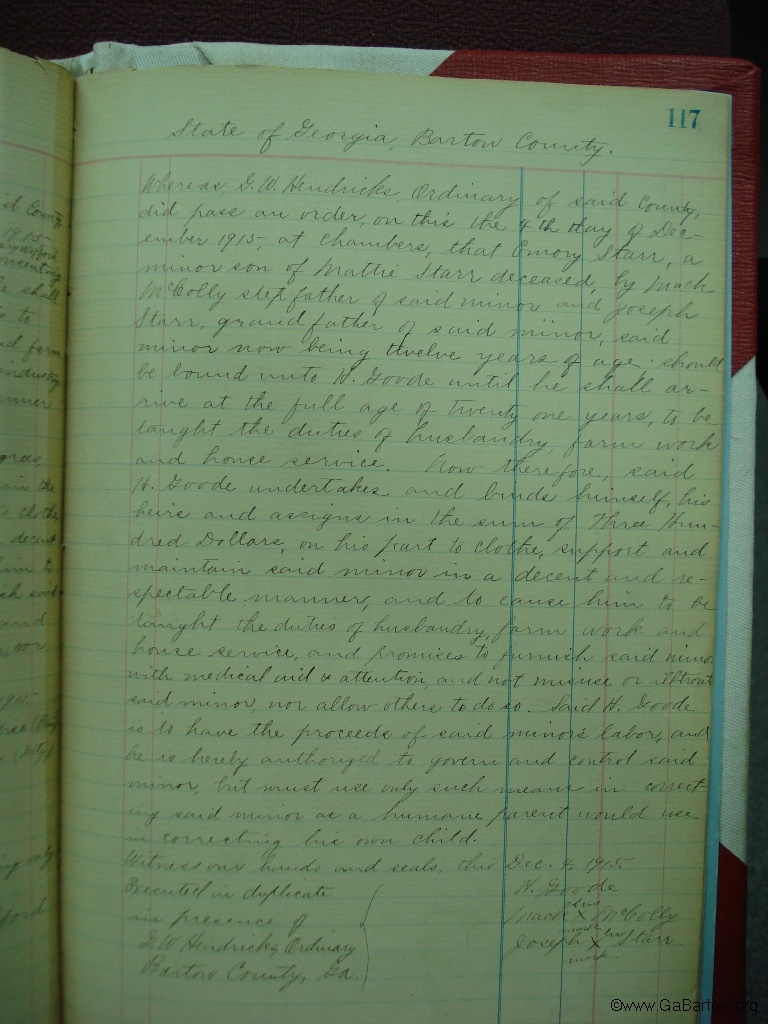 117
State of Georgia, Bartow County.
Whereas, G. W. Hendricks, Ordinary of said County,
did pass an order, on this the 4th day of Dec-
ember 1915, at Chambers, that Emory Starr, a
minor son of Mattie Starr deceased, by Mack
McColly step father of said minor and Joseph
Starr, grand father of said minor, said
minor now being twelve years of age, should
be bound unto H. Goode until he shall ar-
rive at the full age of twenty one years, to be
taught the duties of husbandry, farm work
and house service. Now therefore, said
H. Goode undertakes and binds himself, his
heirs and assigns in the sum of Three Hun-
dred Dollars, on his part to clothe, support and
maintain said minor in a decent and re-
spectable manner, and to cause him to be
taught the duties of husbandry, farm work and
house service, and promises to furnish said minor
with medical aid & attention, and not misuse or illtreat
said minor, nor allow others to do so. Said H. Goode
is to have the proceeds of said minor's labor, and
he is hereby authorized to govern and control said
minor, but must use only such means in correct-
ing said minor as a humane parent would use
in correcting his own child.
Witness our hands and seals, this Dec. 4, 1915.
Executed in duplicate
in presence of
G. W. Hendricks, Ordinary
Bartow County, Ga.
H. Goode
his
Mack X McColly
mark
his
Joseph X Starr
mark
©www.GaBartow.org